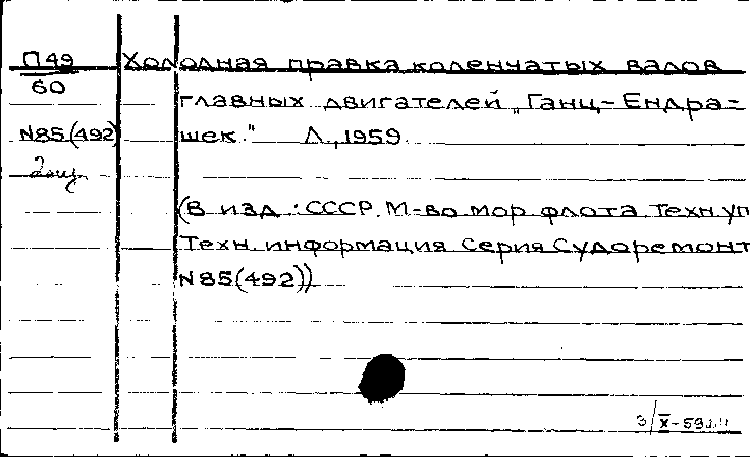 П49 Холодная правка коленчатых валов
60
главных двигателей „Ганц-Ендра=
N85(492) шек." Л., 1959.
2 экз
(В изд.: СССР. М-во мор флота. Техн. уп
Техн. информация Серия Судоремонт
N85(492))